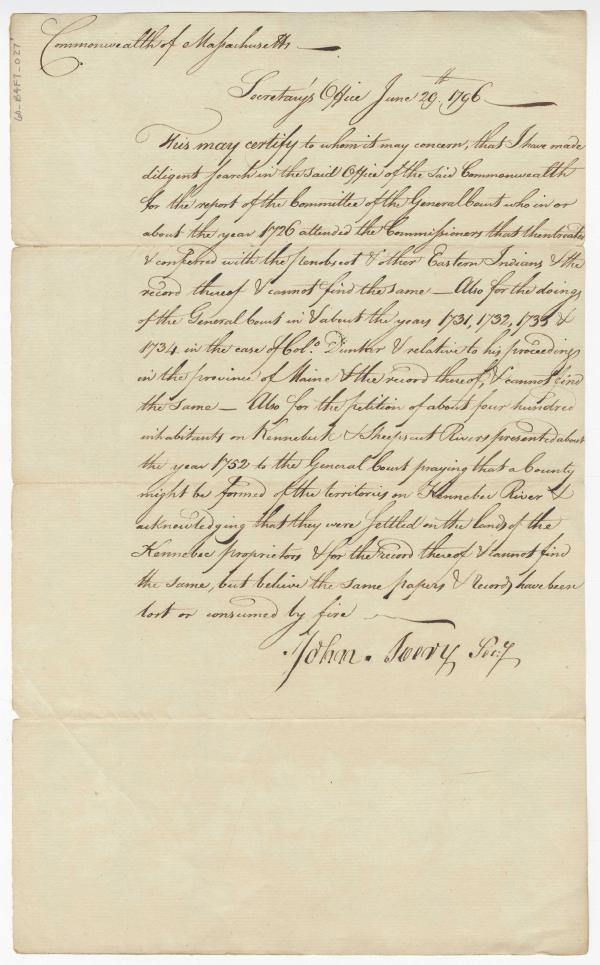 60-B4F1-027
Commonwealth of Massachusetts
Secretary's Office June 29.th 1796
This may certify to whom it may concern, that I have made
diligent search in the said Office of the said Commonwealth
for the report of the Committee of the General Court who in or
about the year 1726 attended the Commissioners that then treated
& conferred with the penobscot & other Eastern Indians & the
record thereof & cannot find the same — Also for the doings
of the General Court in & about the years 1731, 1732, 1733 &
1734 in the case of Col.o Dunbar & relative to his proceedings
in the province of Maine & the record thereof, & cannot find
the same — Also for the petition of about four hundred
inhabitants on Kennebeck & Sheepscut Rivers presented about
the year 1752 to the General Court praying that a County
might be formed of the territories on Kennebec River &
acknowledging that they were settled on the lands of the
Kennebec proprietors & for the record thereof & cannot find
the same, but believe the same papers & Records have been
lost or consumed by fire
John Avery Sec:y